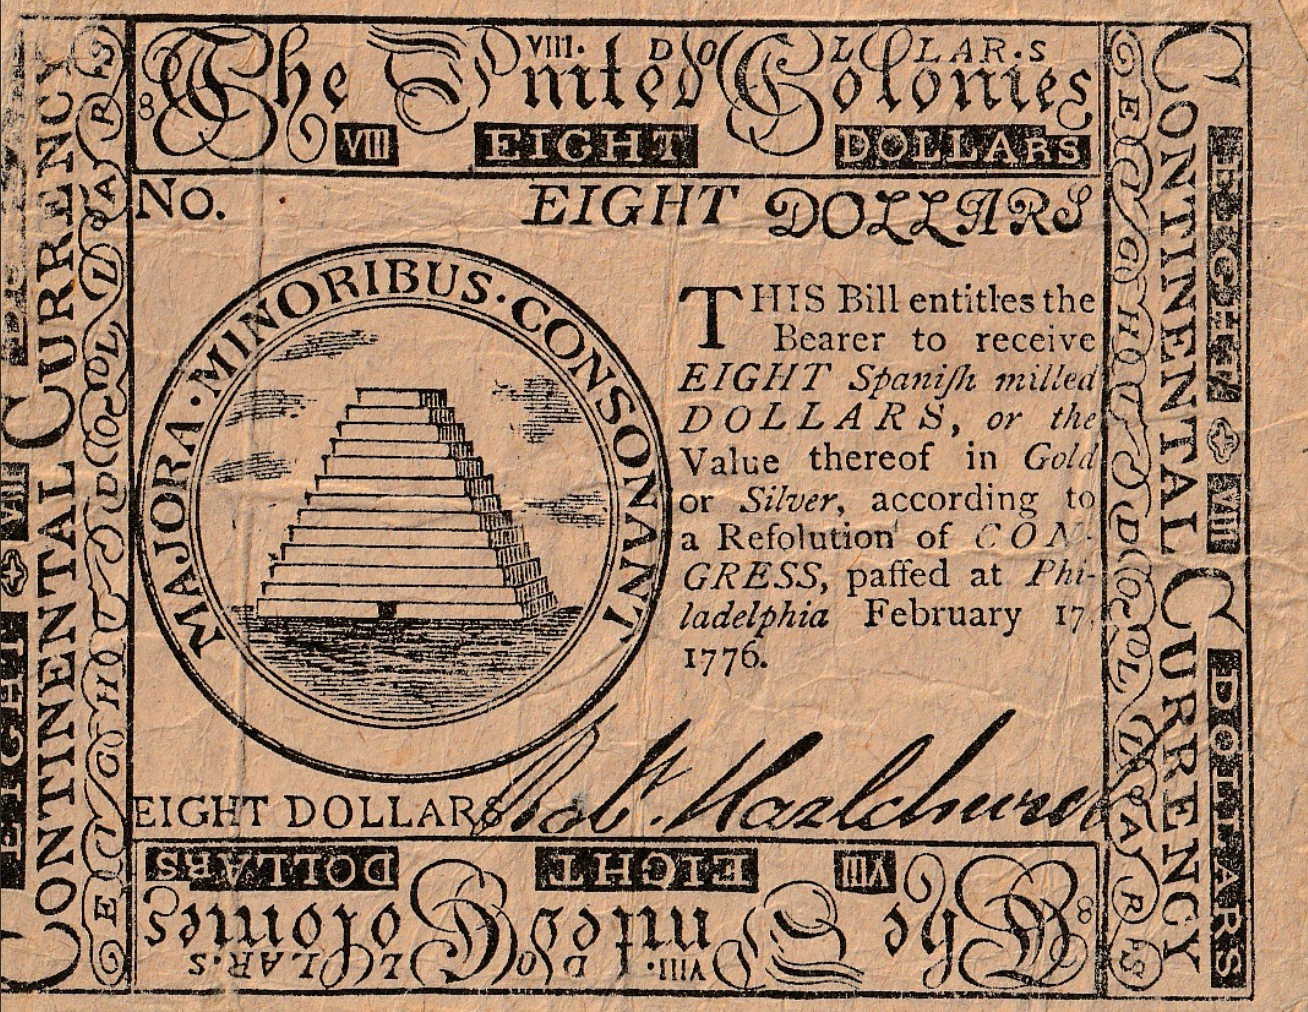 VIII. DOLLLAR.S
The United Colonies
8
VIII EIGHT DOLLARS
No. EIGHT DOLLARS
MAJORA · MINORIBUS · CONSONANT
THIS Bill entitles the
Bearer to receive
EIGHT Spaniſh milled
DOLLARS, or the
Value thereof in Gold
or Silver, according to
a Reſolution of CON-
GRESS, paſſed at Phi-
ladelphia February 17,
1776.
EIGHT DOLLARS
Robt. Hazlehurst
VIII EIGHT DOLLARS
8
The United Colonies
VIII. DOLLLAR.S
EIGHT DOLLARS
CONTINENTAL CURRENCY
EIGHT VIII
EIGHT DOLLARS
CONTINENTAL CURRENCY
EIGHT VIII DOLLARS